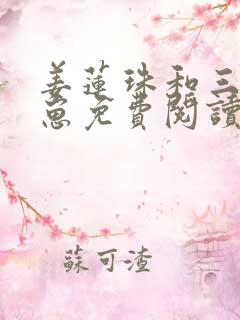 姜蓮珠和三
崽免費閱讀
蘇可渣